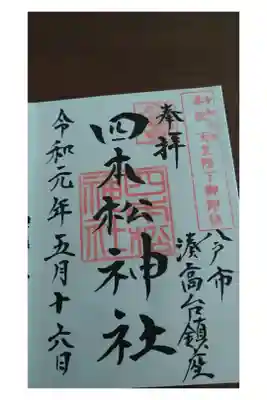 奉拝
八戸市
湊高台鎮座
四本松神社
令和元年五月十六日